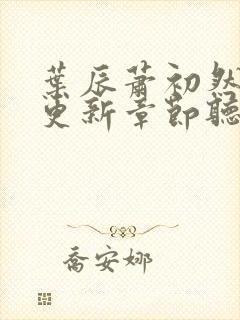 葉辰蕭初然
更新章節聽
喬安娜